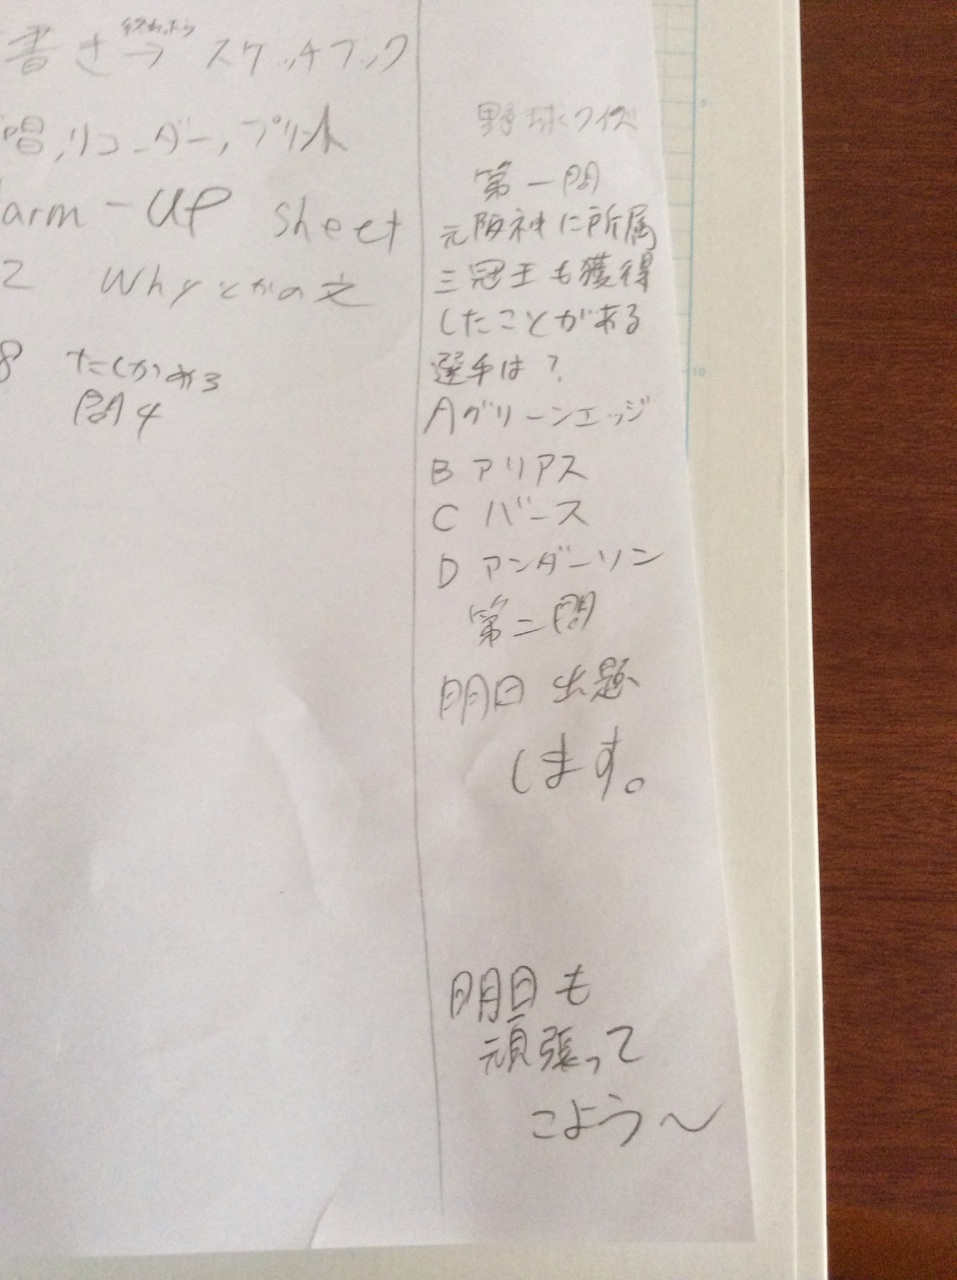 書き 終わったら→ スケッチブック
唱,リコーダー,プリント
arm-UP sheet
2 Whyとかの文
8 たしかめ3
問4
野球クイズ
第一問
元阪神に所属
三冠王も獲得
したことがある
選手は?
Aグリーンエッジ
B アリアス
C バース
D アンダーソン
第二問
明日出題
します。
明日も
頑張って
こよう〜